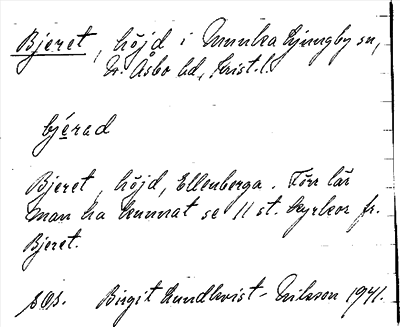 Bjeret, höjd i Munka Ljungby sn,
N. Åsbo hd, Krist. l.
bjérad
Bjeret, höjd, Ellenberga. Förr lär
man ha kunnat se 11 st. kyrkor fr.
Bjeret.
SOS. Birgit Lundkvist-Nilsson 1941.